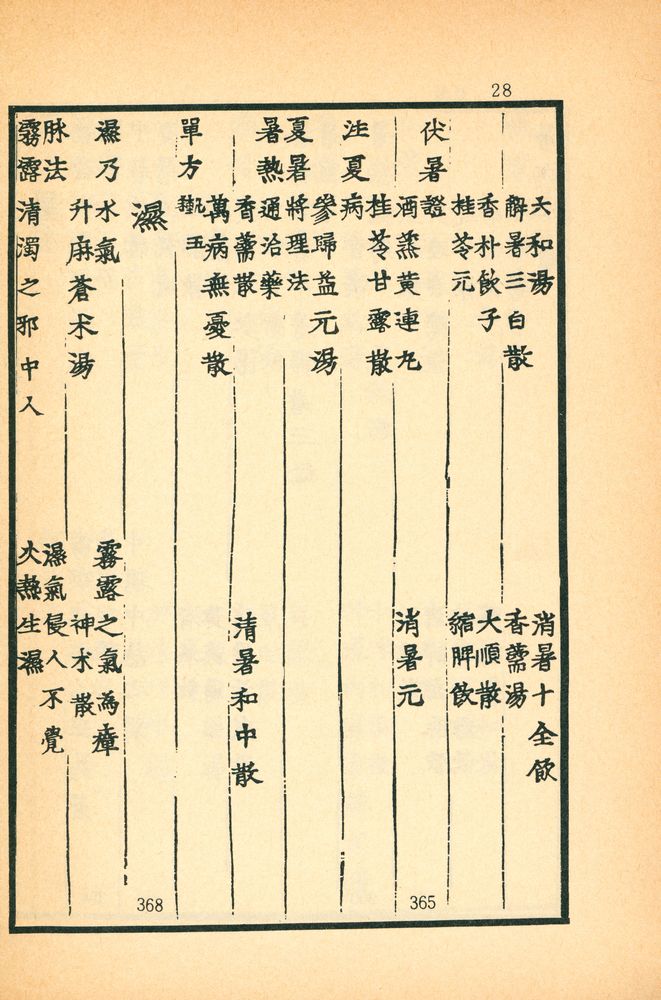 28
六和湯　消暑十全飮
解暑三白散　香薷湯
香朴飮子　大順散
桂苓元　縮脾飮
伏暑證
酒蒸黃連丸　消暑元
桂苓甘露散
注夏病
參歸益元湯
夏暑將理法
暑熱通治藥
香薷散　清暑和中散
萬病無憂散
單方　五
濕
濕乃水氣　霧露之氣爲瘴
升麻蒼朮湯　神朮散
脉法　濕氣侵人不覺
霧露清濁之邪中人　火熱生濕
365
368